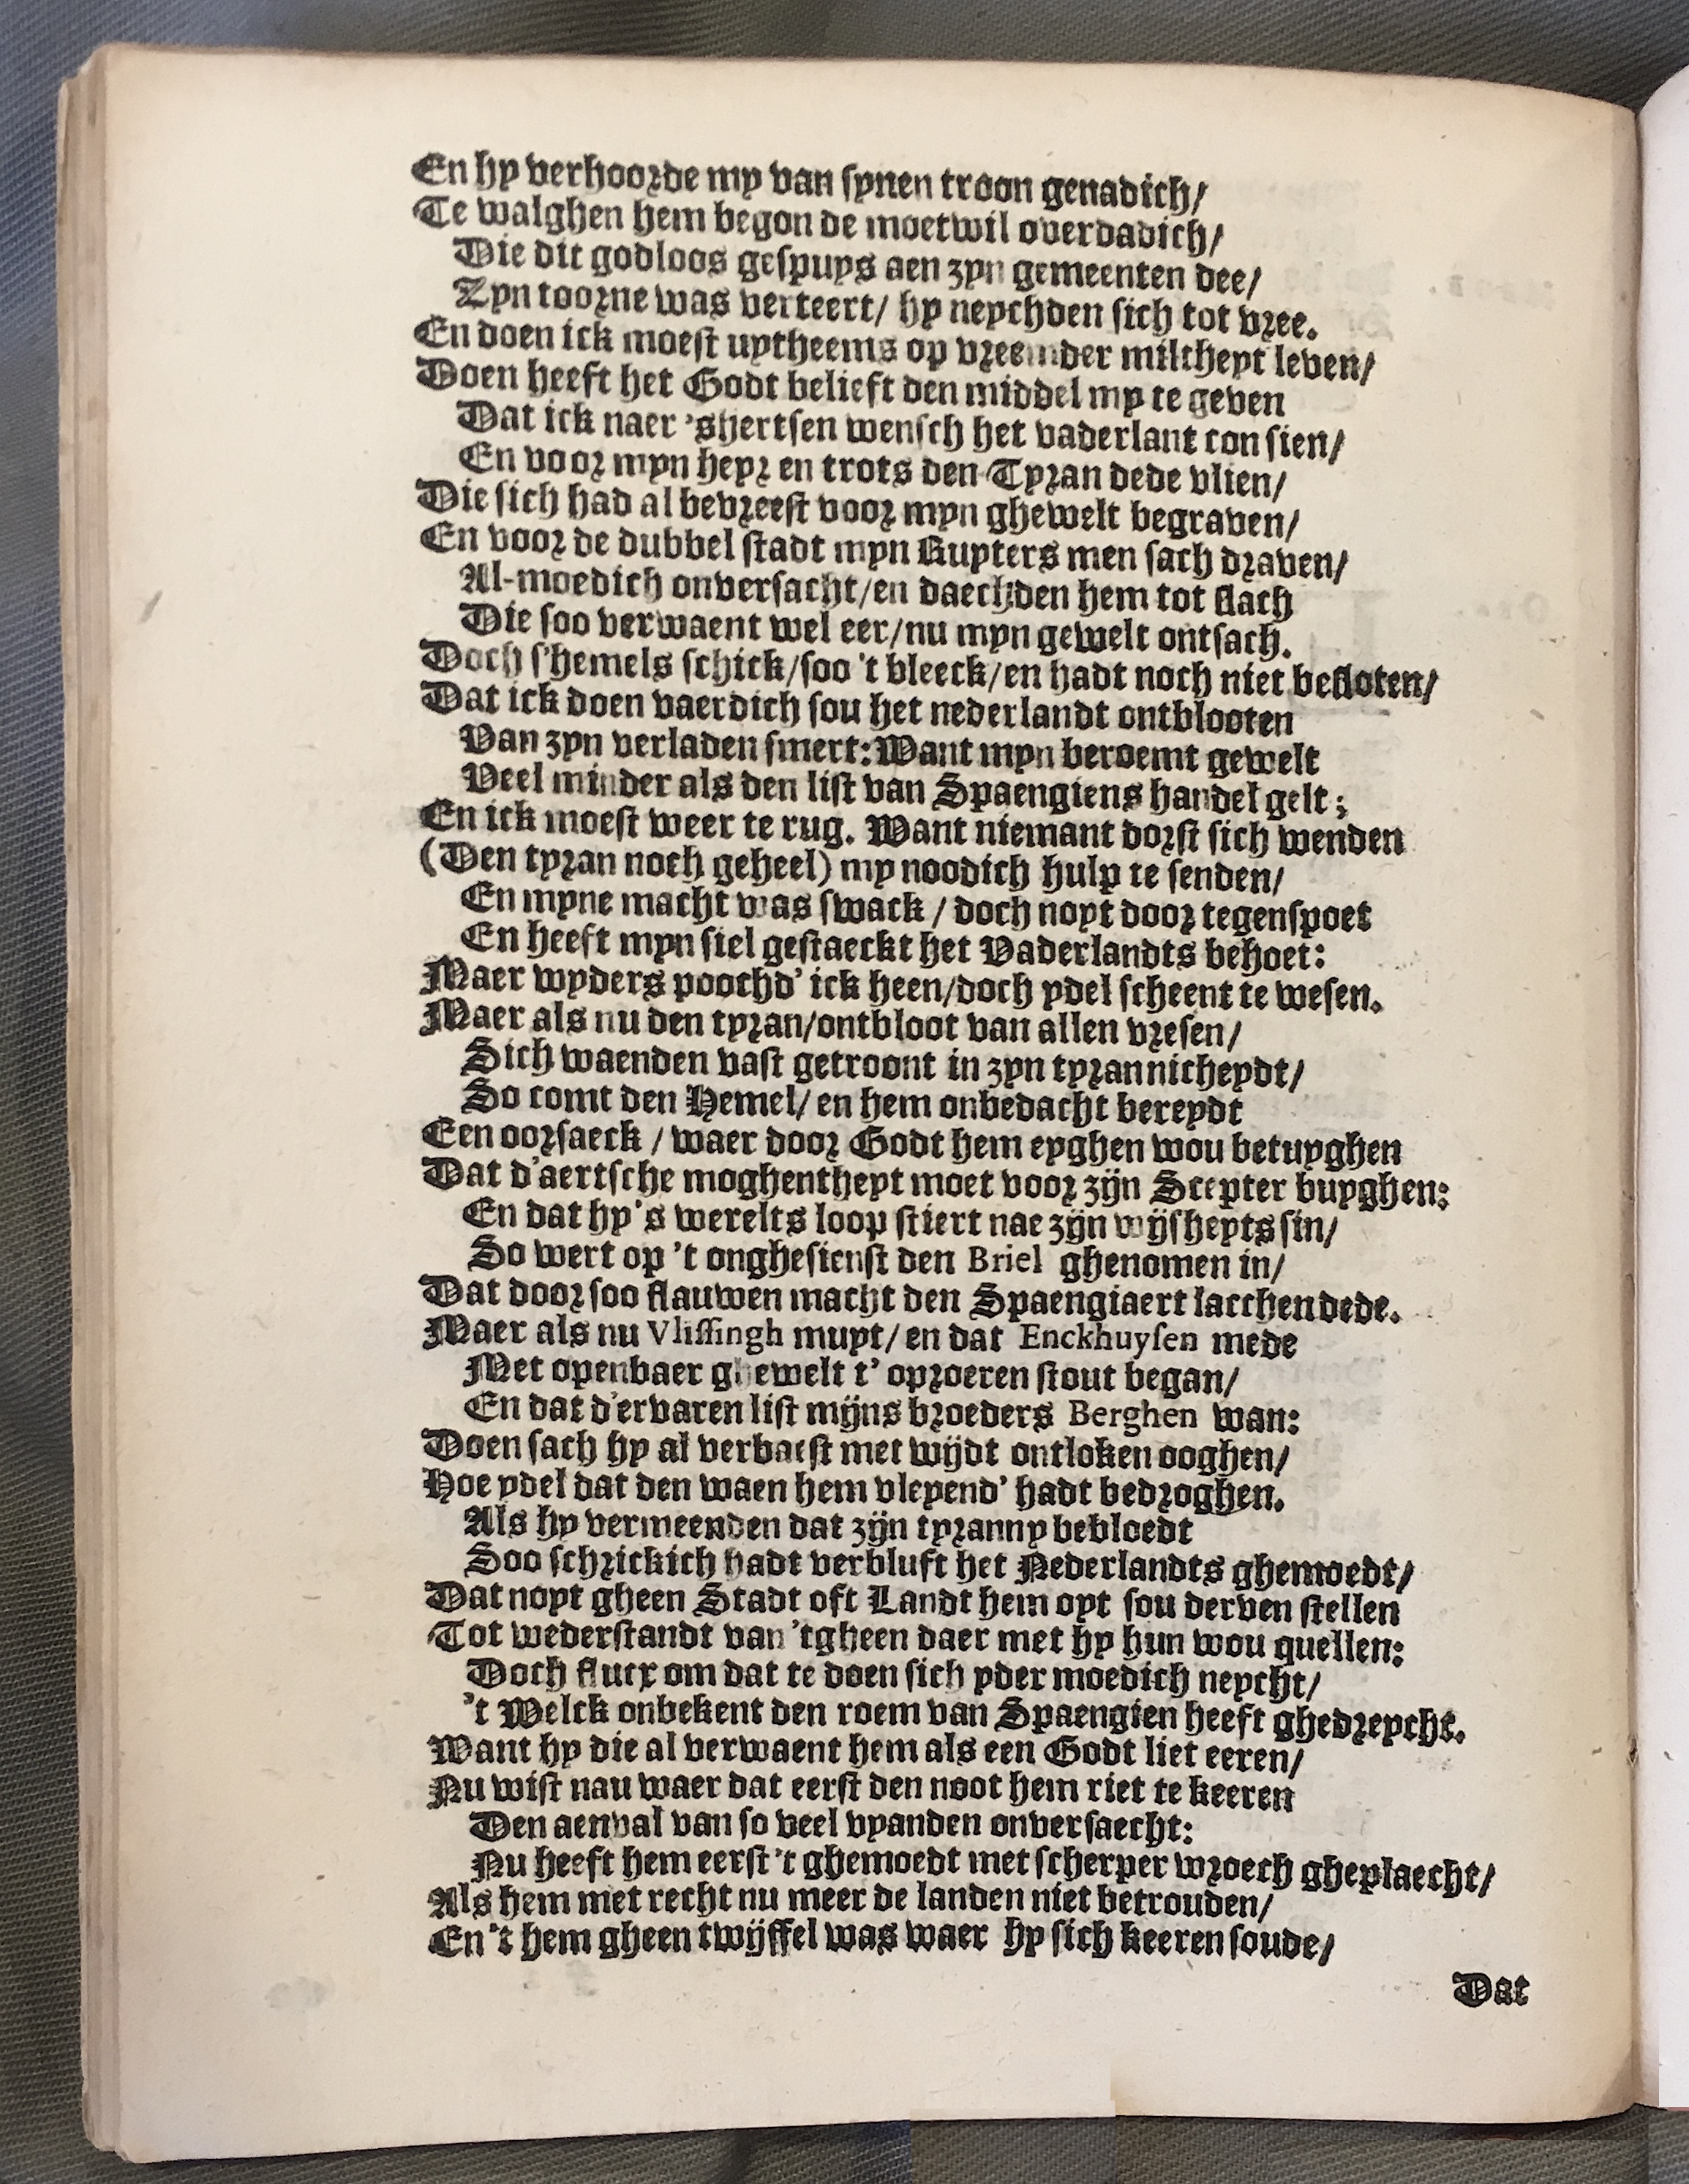 En hy verhoorde my van synen troon genadich/
Te walghen hem begon de moetwil overdadich/
Die dit godloos gespuys aen zyn gemeenten dee/
Zyn toorne was verteert/ hy neychden sich tot vree.
En doen ick moest uytheems op vreemder miltheyt leven/
Doen heeft het Godt belieft den middel my te geven
Dat ick naer 'shertsen wensch het vaderlant con sien/
En voor myn heyr en trots den Tyran dede vlien/
Die sich had al bevreest voor myn ghewelt begraven/
En voor de dubbel stadt myn Ruyters men sach draven/
Al-moedich onversacht/en daechden hem tot slach
Die soo verwaent wel eer/nu myn gewelt ontsach.
Doch s'hemels schick/soo 't bleeck/en hadt noch niet besloten/
Dat ick doen vaerdich sou het nederlandt ontblooten
Van zyn verladen smert: Want myn beroemt gewelt
Veel minder als den list van Spaengiens handel gelt;
En ick moest weer te rug. Want niemant dorst sich wenden
(Den tyran noch geheel) my noodich hulp te senden/
En myne macht was swack / doch noyt door tegenspoet
En heeft myn siel gestaeckt het Vaderlandts behoet:
Maer wyders poochd' ick heen/doch ydel scheent te wesen.
Maer als nu den tyran/ontbloot van allen vresen/
Sich waenden vast getroont in zyn tyrannicheydt/
So comt den Hemel/ en hem onbedacht bereydt
Een oorsaeck / waer door Godt hem eyghen wou betuyghen
Dat d'aertsche moghentheyt moet voor zijn Scepter buyghen:
En dat hy 's werelts loop stiert nae zijn wijsheyts sin/
So wert op 't onghesienst den Briel ghenomen in/
Dat door soo flauwen macht den Spaengiaert lacchen dede.
Maer als nu Vlissingh muyt/ en dat Enckhuysen mede
Met openbaer ghewelt t' oproeren stout began/
En dat d'ervaren list mijns broeders Berghen wan:
Doen sach hy al verbaest met wijdt ontloken ooghen/
Hoe ydel dat den waen hem vleyend' hadt bedroghen.
Als hy vermeenden dat zijn tyranny bebloedt
Soo schrickich hadt verbluft het Nederlandts ghemoedt/
Dat noyt gheen Stadt oft Landt hem oyt sou derven stellen
Tot wederstandt van 'tgheen daer met hy hun wou quellen:
Doch flucx om dat te doen sich yder moedich neycht/
't Welck onbekent den roem van Spaengien heeft ghedreycht.
Want hy die al verwaent hem als een Godt liet eeren/
Nu wist nau waer dat eerst den noot hem riet te keeren
Den aenval van so veel vyanden onversaecht:
Nu heeft hem eerst 't ghemoedt met scherper wroech gheplaecht/
Als hem met recht nu meer de landen niet betrouden/
En 't hem gheen twijffel was waer hy sich keeren soude/
Dat